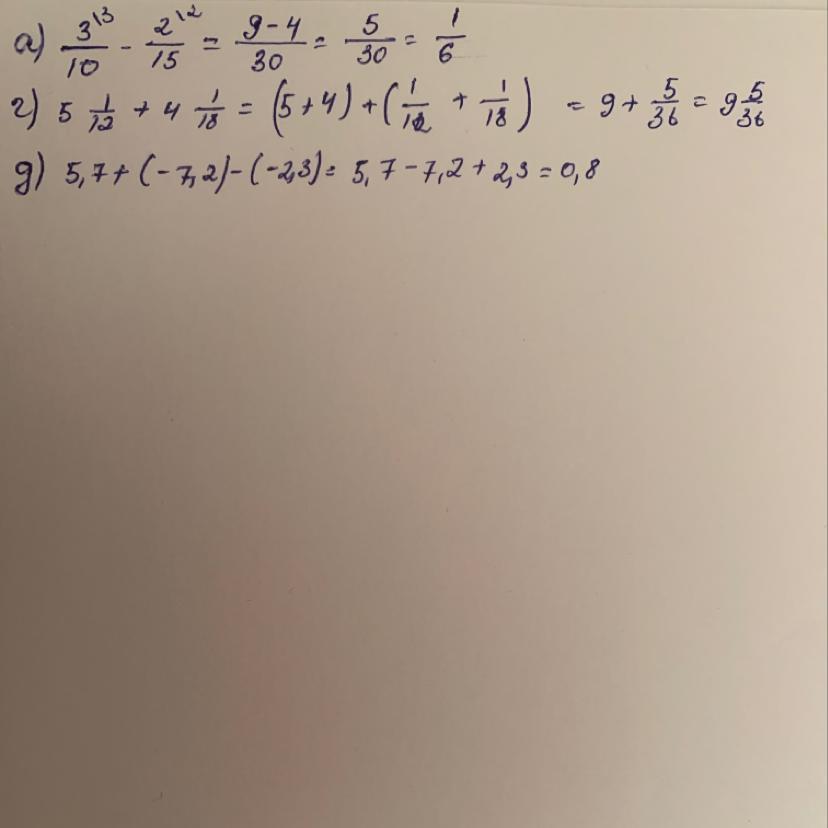 а) 3\3/10 - 2\2/15 = 9-4/30 = 5/30 = 1/6
г) 5 1/12 + 4 1/18 = (5+4)+(1/12 + 1/18) = 9+ 5/36 = 9 5/36
д) 5,7+(-7,2)-(-2,3)= 5,7-7,2+2,3=0,8